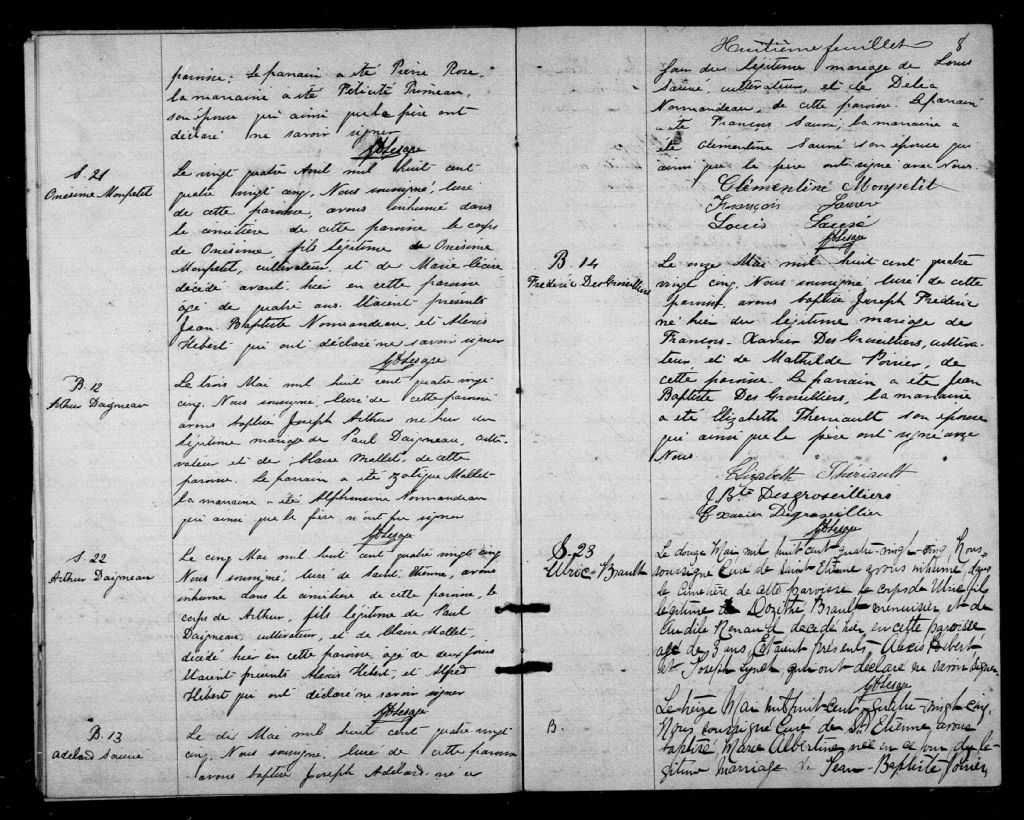 paroisse; Le parrain a été Pierre Rose,
la marraine a été Félicité Primeau,
son épouse qui ainsi que le père ont
déclaré ne savoir signer
GD Lesage
S. 21
Onésime Monpetit
Le vingt quatre Avril mil huit cent
quatre vingt cinq, Nous soussigné, curé
de cette paroisse, avons inhumé dans
le cimetière de cette paroisse le corps
de Onésime, fils légitime de Onésime
Monpetit, cultivateur, et de Marie
décédé avant hier en cette paroisse
âgé de quatre ans. Etaient présents
Jean Baptiste Normandeau, et Alexis
Hebert qui ont déclaré ne savoir signer
GD Lesage
B. 12
Arthur Daigneau
Le trois Mai mil huit cent quatre vingt
cinq, Nous soussigné, curé de cette paroisse
avons baptisé Joseph Arthur né hier du
légitime mariage de Paul Daigneau, culti-
vateur et de Claire Mallet, de cette
paroisse. Le parrain a été Zotique Mallet
la marraine a été Alphonsine Normandeau
qui ainsi que le père n'ont pu signer
GD Lesage
S. 22
Arthur Daigneau
Le cinq Mai mil huit cent quatre vingt cinq
Nous soussigné, curé de Saint Etienne, avons
inhumé dans le cimetière de cette paroisse, le
corps de Arthur, fils légitime de Paul
Daigneau, cultivateur, et de Claire Mallet,
décédé hier en cette paroisse, âgé de deux jours
Etaient présents Alexis Hebert, et Alfred
Hebert qui ont déclaré ne savoir signer
GD Lesage
B. 13
Adelard Sauvé
Le dix Mai mil huit cent quatre vingt
cinq, Nous soussigné, curé de cette paroisse
avons baptisé Joseph Adelard, né ce
Huitième feuillet 8
jour du légitime mariage de Louis
Sauvé, cultivateur, et de Délia
Normandeau, de cette paroisse. Le parrain
a été François Sauvé, la marraine a
été Clémentine Sauvé son épouse qui
ainsi que le père ont signé avec Nous.
Clémentine Monpetit
François Sauvé
Louis Sauvé
GD Lesage
B. 14
Frédéric DesGroseilliers
Le onze Mai mil huit cent quatre
vingt cinq, Nous soussigné, curé de cette
paroisse, avons baptisé Joseph Frédéric
né hier du légitime mariage de
François-Xavier Des Groseilliers, cultiva-
teur et de Mathilde Poirier, de
cette paroisse. Le parrain a été Jean
Baptiste Des Groseilliers, la marraine
a été Elizabeth Theriault son épouse
qui ainsi que le père ont signé avec
Nous
Elizabeth Thériault
J. Bte Desgroseilliers
F xavier Degroseillier
GD Lesage
S. 23
Ulric Brault
Le douze Mai mil huit cent quatre-vingt-cinq, Nous
soussigné Curé de Saint Etienne avons inhumé dans
le cimetière de cette paroisse le corps de Ulric fils
légitime de Dozithé Brault menuisier et de
décédé hier en cette paroisse
âgé de 3 ans, Etaient présents Alexis Hebert
et Joseph qui ont déclaré ne savoir signer
GD Lesage
B.
Le treize Mai mil huit-cent-quatre-vingt-cinq,
Nous soussigné Curé de St Etienne avons
baptisé Marie Albertine née en ce jour du lé-
gitime marriage de Jean-Baptiste Poirier,